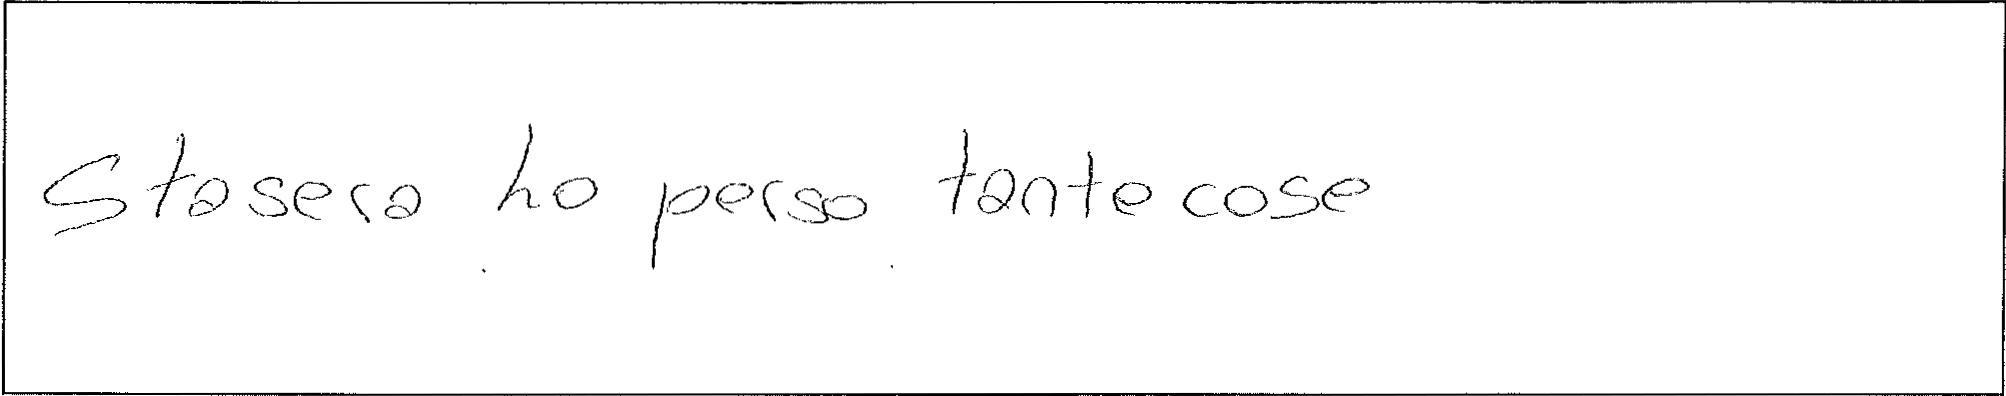 Stasera ho perso tante cose